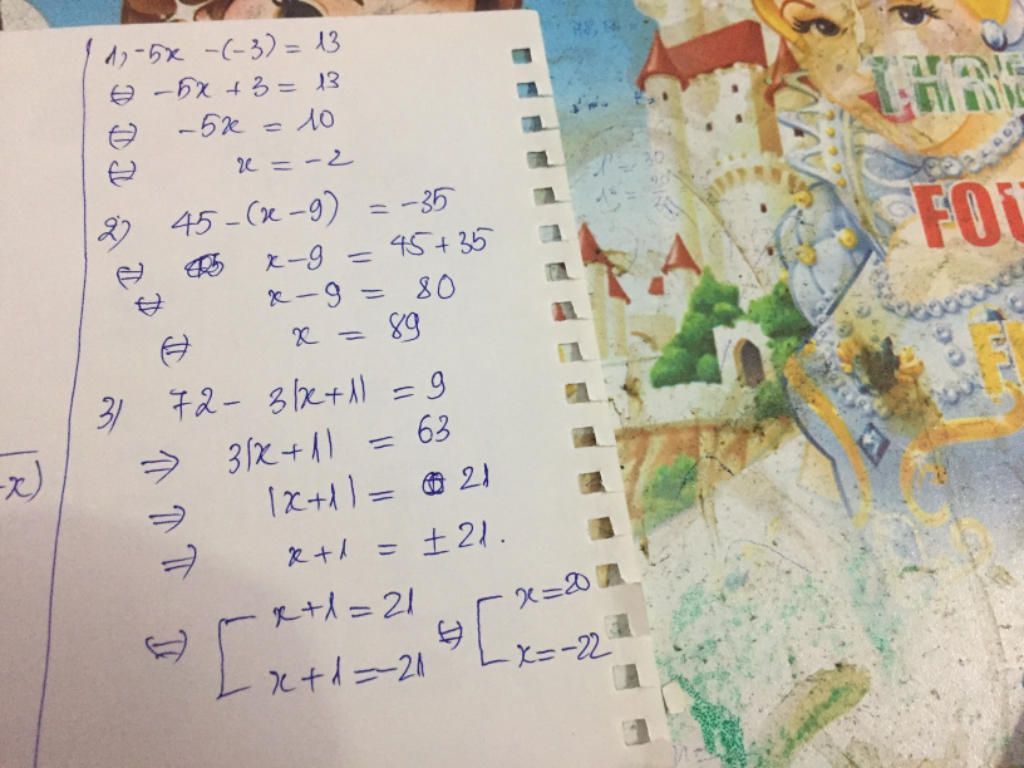 1, -5x - (-3) = 13
⇔ -5x + 3 = 13
⇔ -5x = 10
⇔ x = -2
2) 45 - (x - 9) = -35
⇔ x - 9 = 45 + 35
⇔ x - 9 = 80
⇔ x = 89
3) 72 - 3|x+1| = 9
⇒ 3|x+1| = 63
⇒ |x+1| = 21
⇒ x+1 = ±21.
⇔ [ x+1 = 21 ⇔ [ x = 20
x+1 = -21 x = -22
-x)
FOU